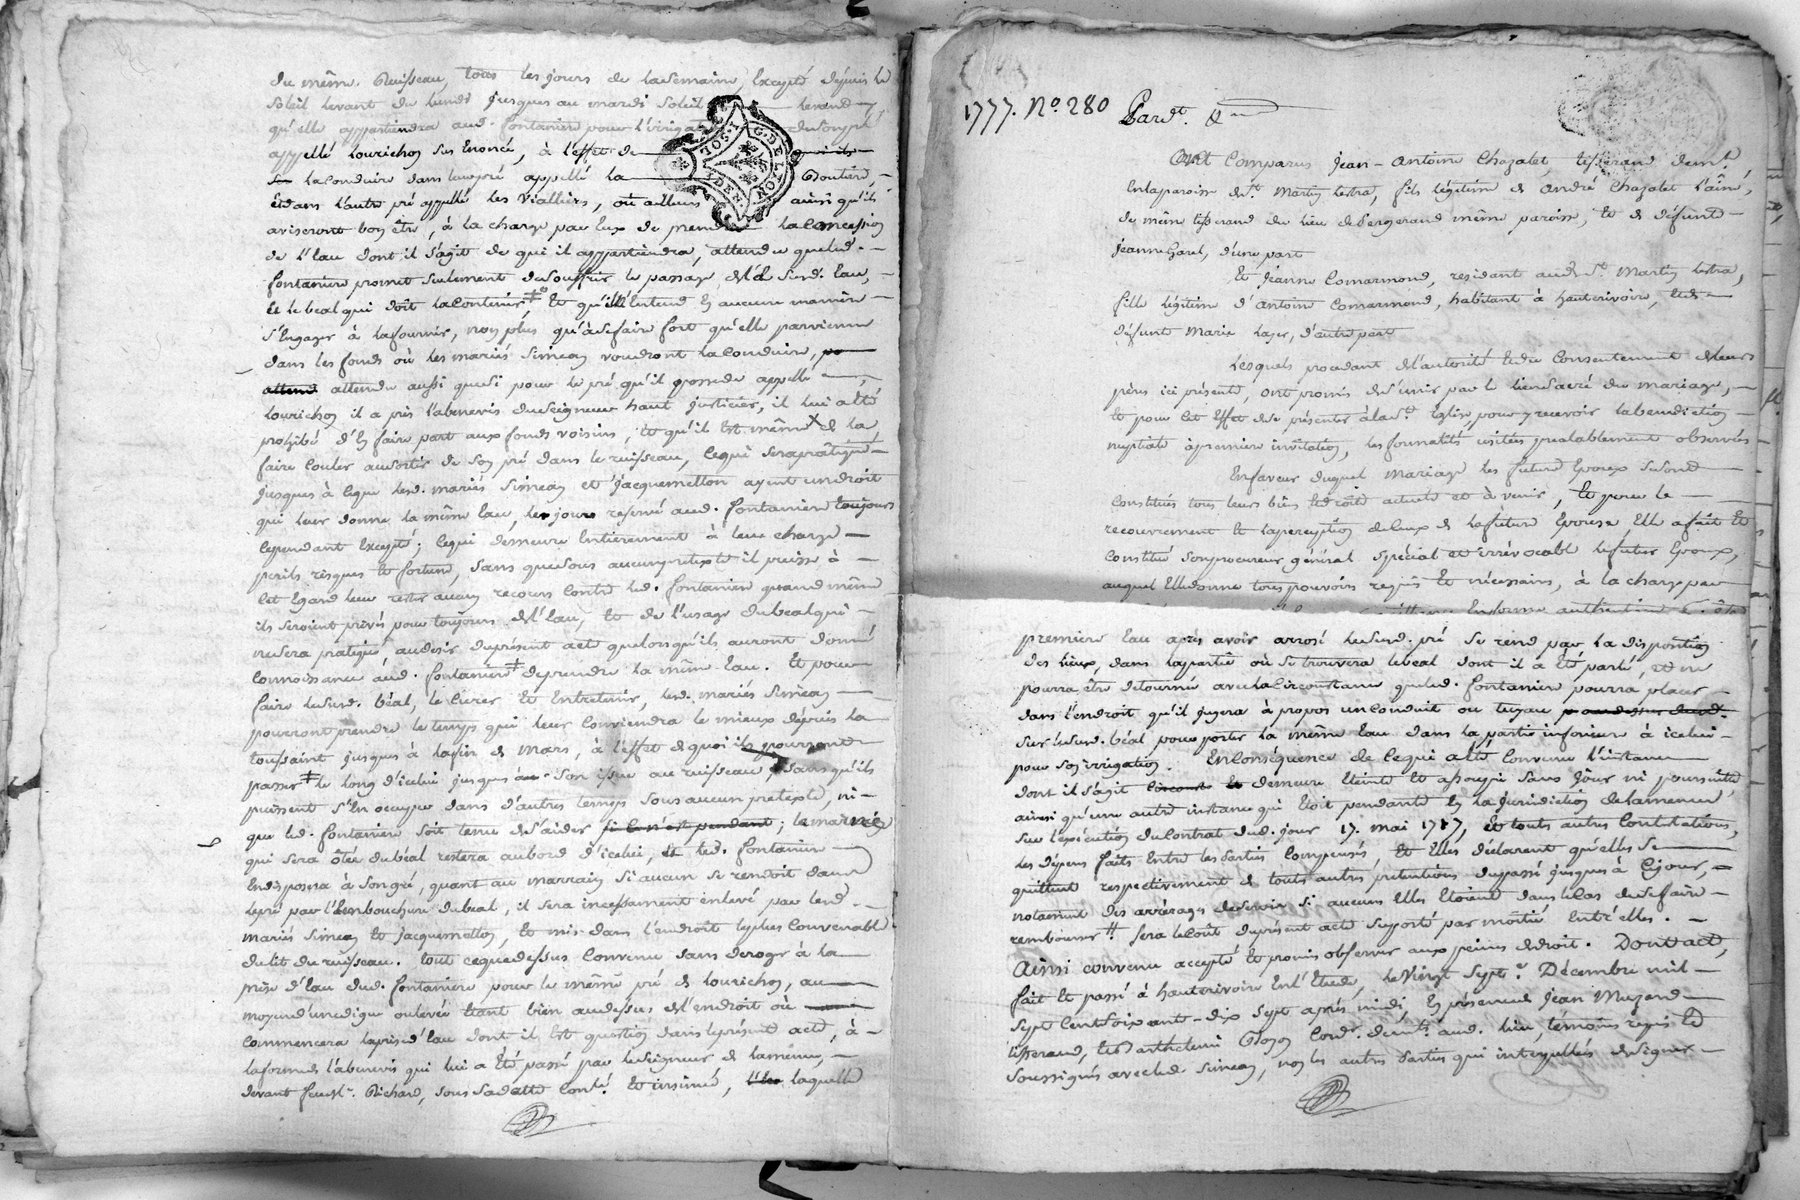 du même Ruisseau, tous les jours de la semaine, Excepté depuis le
soleil levant du lundi jusques au mardi soleil levand,
qu'elle appartiendra aud. fontanière pour l'irrigation du son pré
appellé Lourichon sus Enoncé, à l'effet de
la conduire dans leur pré appellé la Boutière,
et dans l'autre pré appellé les Vialliers, ou ailleurs ainsi qu'ils
aviseront bon être, à la charge par Eux de prendre la Concession
de l'Eau dont il s'agit de qui il appartiendra, attendu que led.
fontanière promet seulement de souffrir le passage de lad. Eau,
Et le béal qui doit la contenir, Et qu'il n'Entend En aucune manière
s'Engager à la fournir, non plus qu'à se faire fort qu'elle parvienne
dans les fonds où les mariés Siméan voudront la Conduire, po
attend attendu aussi que si pour le pré qu'il possede appellé
Lourichon il a pris l'abenevis du seigneur haut justicier, il lui a Eté
prohibé d'En faire part aux fonds voisins, Et qu'il Est même de la
faire couler au sortir de son pré dans le ruisseau, ce qui sera pratiqué
jusques à ce que lesd. mariés Siméan et Jacquemetton ayent un droit
qui leur donne la même Eau, les jours reservé aud. fontanière toujours
cependant Excepté; ce qui demeure Entièrement à leur charge
perils risques Et fortune, sans que sous aucun pretexte il puisse à
cet Egard leur rester aucun recours contre led. fontanière quand même
ils seroient privés pour toujours de l'Eau, Et de l'usage du béal qui
ne sera pratiqué au desir du présent acte que lorsqu'ils auront donné
connoissance aud. fontanière de prendre la même Eau. Et pour
faire led. béal, le curer Et Entretenir, lesd. mariés Siméan
pourront prendre le temps qui leur Conviendra le mieux depuis la
toussaint jusques à la fin de Mars, à l'effet de quoi ils pourront
passer le long d'icelui jusques à son issue au ruisseau, sans qu'ils
puissent s'En occuper dans d'autres temps sous aucun pretexte, ni
que led. fontanière soit tenu de s'aider si ce n'est pendant; le marrein
qui sera ôté du béal restera au bord d'icelui, et led. fontanière
En disposera à son gré, quant au marrain si aucun se rendoit dans
le pré par l'Embouchure du béal, il sera incessament enlevé par lesd.
mariés Siméan Et Jacquemetton, Et mis dans l'endroit le plus Convenable
du lit du ruisseau. tout ce que dessus Convenu sans deroger à la
prise d'Eau dud. fontanière pour le même pré de Lourichon, au
moyen d'une digue ou levée Etant bien au dessus de l'endroit où
commencera la prise d'Eau dont il Est question dans le présent acte, à
la forme de l'abenevis qui lui a Eté passé par le seigneur de la menue,
devant feu Mr. Richard, sous sa datte Conlé. Et insinué, laquelle
1777. No. 280 Pardt. Qn
Ont Comparus Jean-Antoine Chazalet, tisserand demt.
En la paroisse de St. Martin Lestra, fils légitime de André Chazalet l'aîné,
de même tisserand du lieu de bergerand même paroisse, Et de défunte
Jeanne Garel, d'une part
Et Jeanne Comarmond, residant aud. St. Martin Lestra,
fille légitime d'Antoine Comarmond, habitant à hauterivoire, Et de
défunte Marie Lager, d'autre part
Lesquels procedant de l'autorité Et du Consentement de leurs
pères ici présents, ont promis de s'unir par le lien sacré du mariage,
Et pour cet Effet de se présenter à la ste. Eglise, pour y recevoir la benediction
nuptiale à premiere invitation, les formalités usitées prealablement observées
En faveur duquel Mariage les futurs Epoux se sont
constitués tous leurs biens Et droits actuels et à venir, Et pour le
recouvrement Et la perception de ceux de la future Epouse, Elle a fait Et
constitué son procureur général spécial et irrévocable le futur Epoux,
auquel Elle donne tous pouvoirs requis Et nécessaires, à la charge par
premiere Eau après avoir arrosé led. pré se rend par la disposition
des lieux, dans la partie où se trouvera le béal dont il a Eté parlé, et ne
pourra être detournée avec la circonstance que led. fontanière pourra placer
dans l'endroit qu'il jugera à propos un conduit ou tuyau
sur led. béal pour porter la même Eau dans la partie inférieure à icelui
pour son irrigation. En conséquence de ce qui a Eté convenu l'instance
dont il s'agit demeure Eteinte Et assoupie sans Jour ni poursuite,
ainsi qu'une autre instance qui Etoit pendante En la Jurisdiction de la menue
sur l'exécution du Contrat dud. jour 17. mai 1717, Et touts autres Contestations,
les dépens faits Entre les Parties Compensés, Et Elles déclarent qu'elles se
quittent respectivement de touts autres prétentions du passé jusques à ce jour,
notamment des arrérages de servis si aucuns Elles Etoient dans le Cas de se faire
rembourser. Sera le Coût du présent acte suporté par moitié Entr'elles.
Ainsi convenu accepté Et promis observer aux peines de droit. Dont acte,
fait Et passé à hauterivoire En l'Etude, le Vingt Sept Décembre mil
sept Cent soixante-dix sept après midi, En présence de Jean Muzard
tisserand, Et Barthelemi Cordr. demts. aud. lieu, témoins requis Et
soussignés avec led. Siméan, non les autres Parties qui interpellées de signer